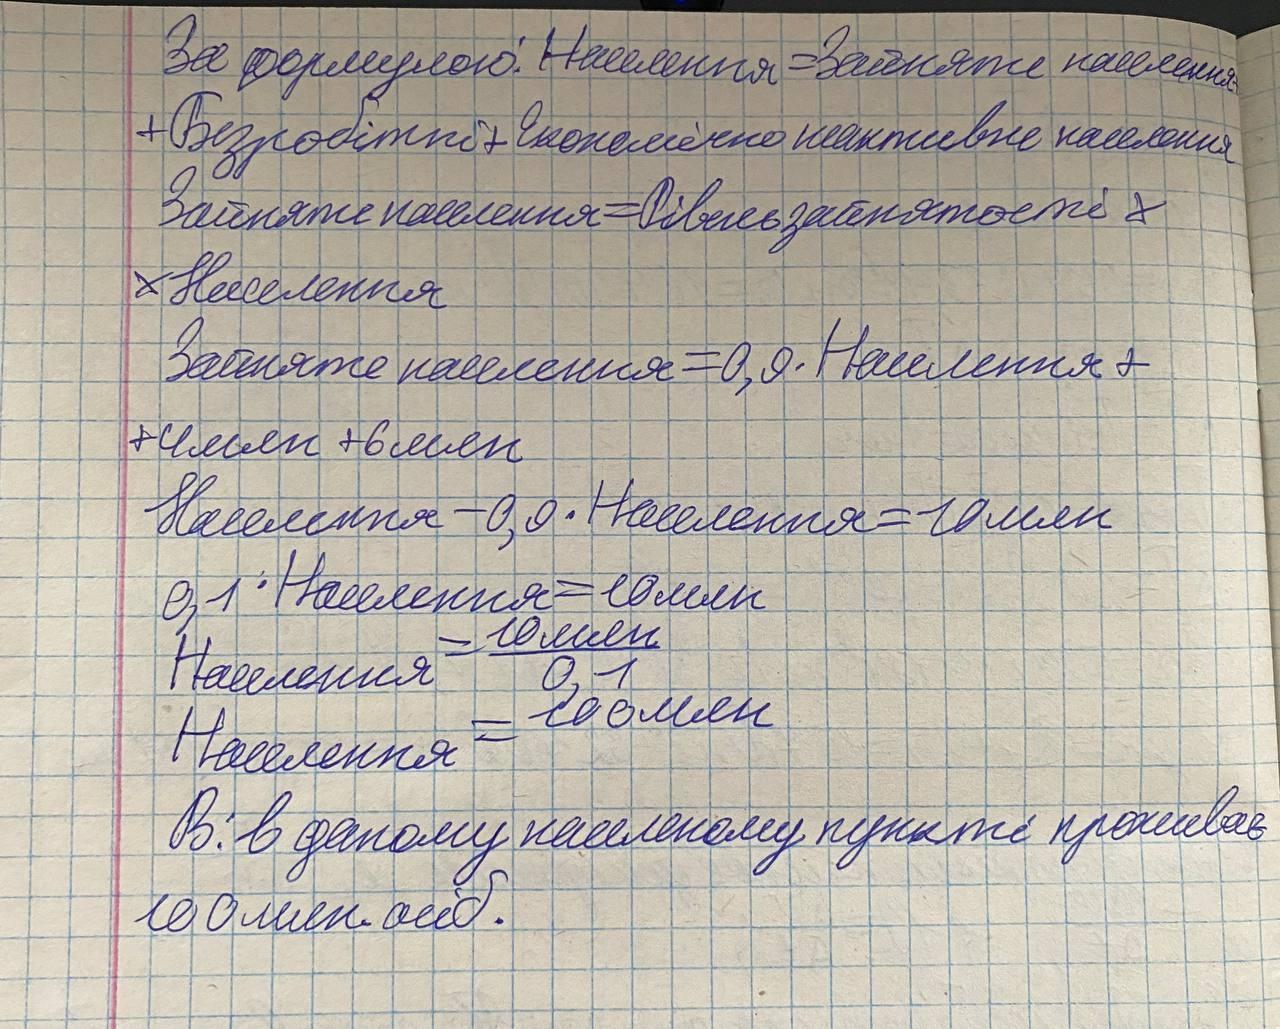 За формулою: Населення = Зайняте населення +
+ Безробітні + Економічно неактивне населення
Зайняте населення = Рівень зайнятості ×
× Населення
Зайняте населення = 0,9 · Населення +
+ 4 млн + 6 млн
Населення - 0,9 · Населення = 10 млн
0,1 · Населення = 10 млн
Населення = 10 млн
0,1
Населення = 100 млн
В: в даному населеному пункті проживає
100 млн. осіб.